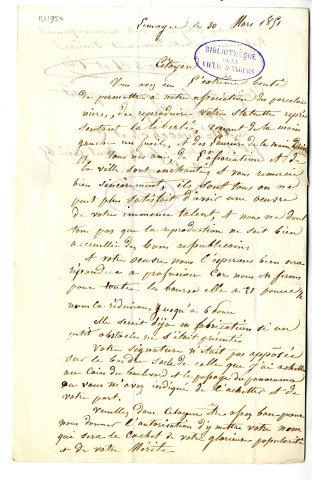 Limoges le 30 Mars 1851
BIBLIOTHÈQUE
DE LA
VILLE D'ANGERS
Citoyen
Vous avez eu l'extrême bonté
de permettre à notre association de porcelai-
niers, de reproduire votre statuette repré
sentant la liberté, tenant de la main
gauche un fusil, et des lauriers de la main droite
Tous nos amis, de l'association et de
la ville sont enchantés et vous remercie
bien sincèrement, ils sont tous on ne
peut plus satisfait d'avoir une œuvre
de votre immense talent, et nous ne dou
tons pas que la reproduction ne soit bien
accueillie des bons républicains
Et votre œuvre nous l'espérons bien sera
répandue à profusion car nous en ferons
pour toutes les bourses elle a 21 pouces
nous la réduirons jusqu'à 6 pouces
Elle serait déja en fabrication si un
petit obstacle ne s'était présenté
Votre signature n'était pas apposée
sur le socle de celle que j'ai achetée
au coin du boulevard et le passage du panorama
ou vous m'avez indiqué de l'acheter et de
votre part.
Veuillez donc Citoyen être assez bon pour
nous donner l'autorisation d'y mettre votre nom
qui sera le cachet de votre glorieuse popularité
et de votre Mérite